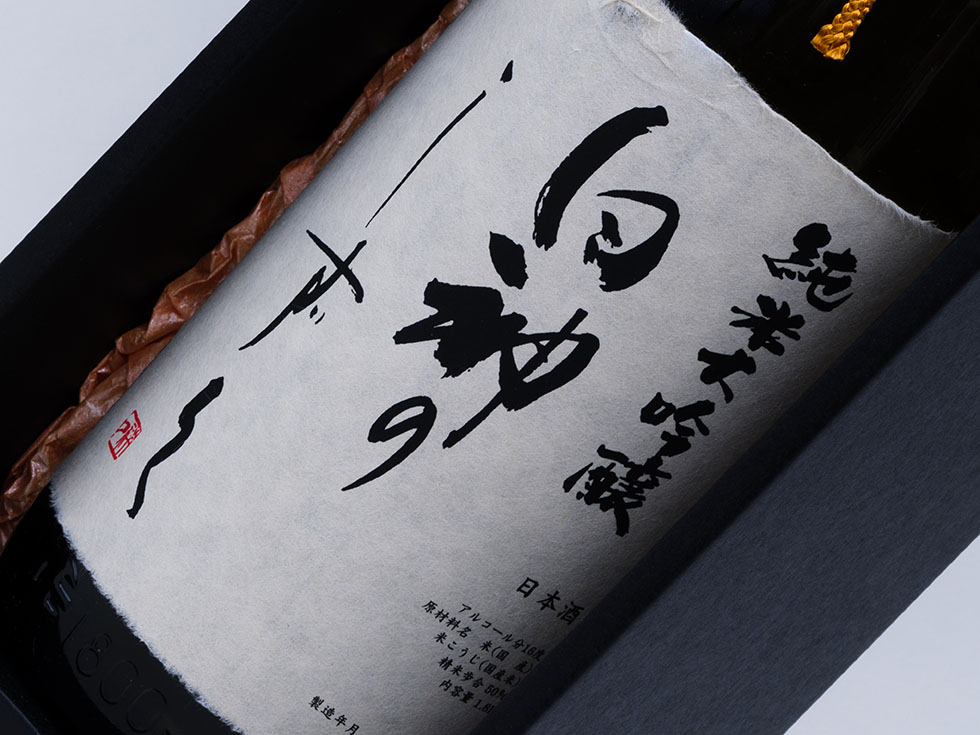 純米大吟醸
白神の
しずく
日本酒
アルコール分16度
原材料名 米(国 産)
米こうじ(国産米)
精米歩合 50%
内容量 1.8
製造年月
1800